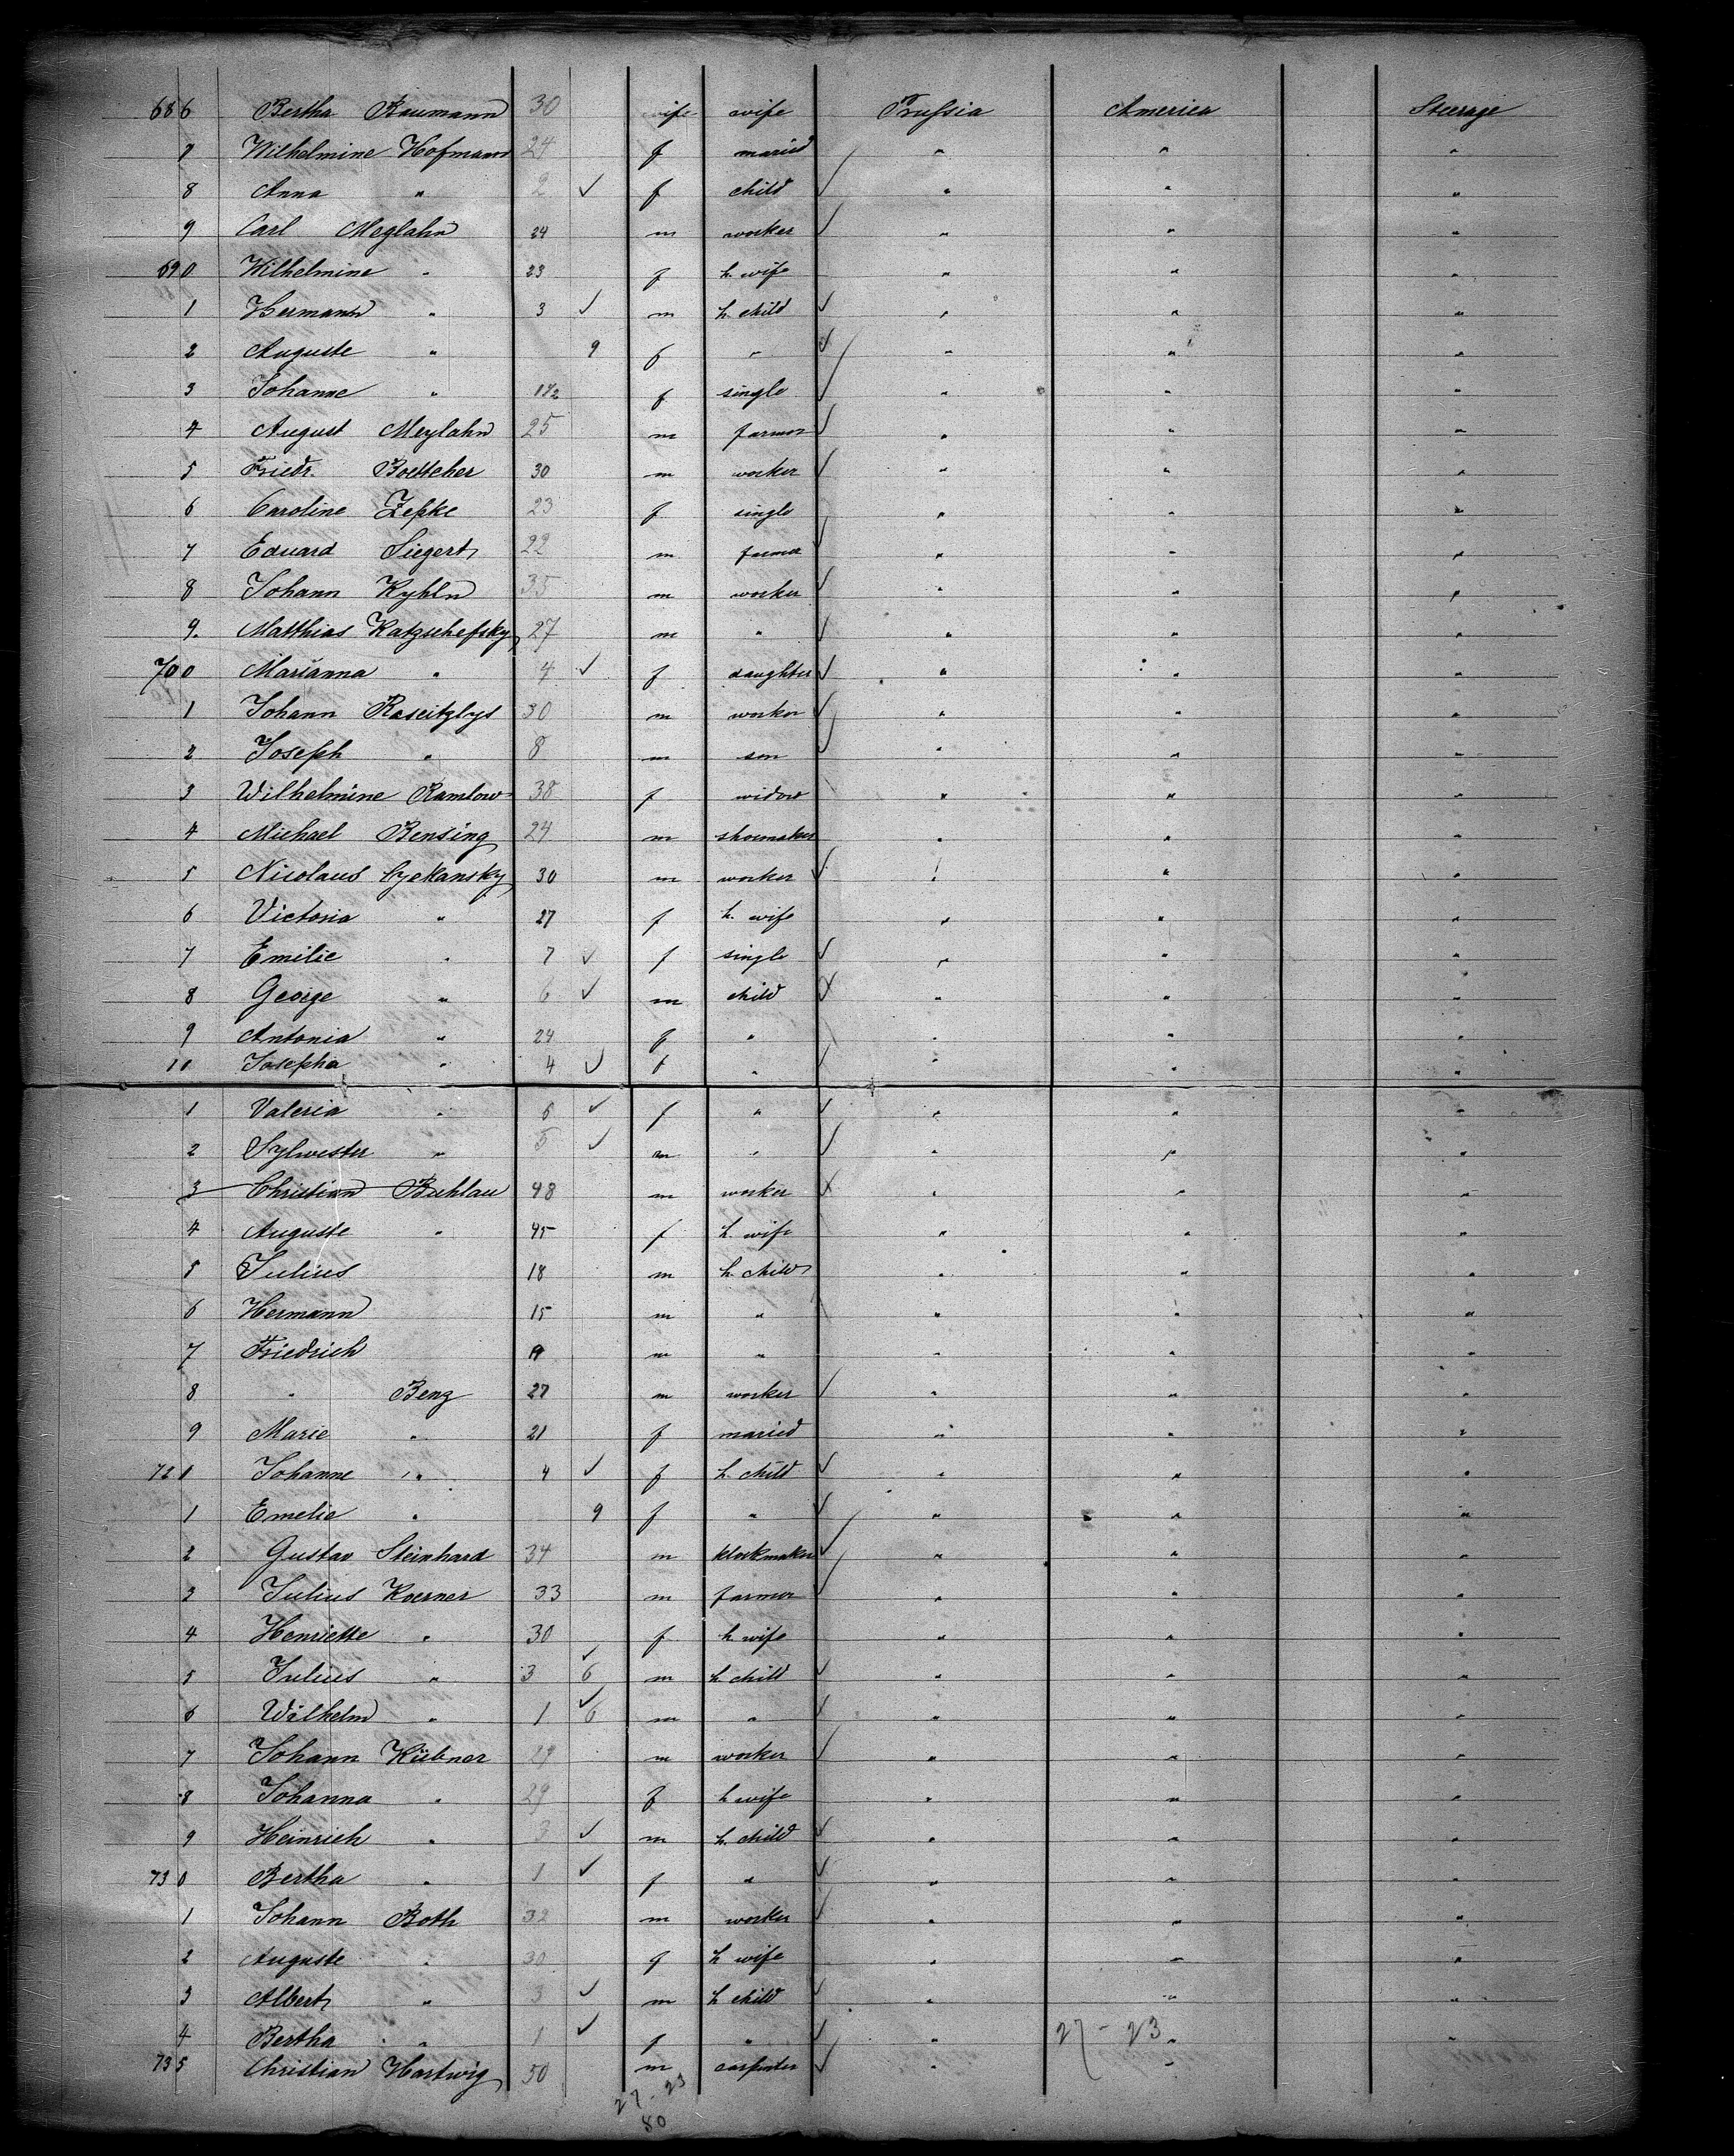 686 Bertha Baumann 30 wife wife Prussia America Steerage
7 Wilhelmine Hofmann 24 f maried " " "
8 Anna " 2 ✓ f child ✓ " " "
9 Carl Meglahn 24 m worker ✓ " " "
690 Wilhelmine " 23 f h. wife " " "
1 Hermann " 3 ✓ m h. child ✓ " " "
2 Auguste " 9 f " ✓ " " "
3 Johanne " f single ✓ " " "
4 August Meylahn 25 m farmer ✓ " " "
5 Friedr. Boettcher 30 m worker ✓ " " "
6 Caroline Zepke 23 f single " " "
7 Eduard Siegert 22 m farmer ✓ " " "
8 Johann Kyhln 35 m worker ✓ " " "
9. Matthias Katzschefsky 27 m " ✓ " " "
700 Marianna " 4 ✓ f daughter ✓ " " "
1 Johann Raseitzlys 30 m worker ✓ " " "
2 Joseph " 8 m son ✓ " " "
3 Wilhelmine Ramlow 38 f widow " " "
4 Michael Bensing 24 m shoemaker " " "
5 Nicolaus Cyekansky 30 m worker ✓ " " "
6 Victoria " 27 f h. wife " " "
7 Emilie " 7 ✓ f single ✓ " " "
8 George " 6 ✓ m child " " "
9 Antonia " 24 f " " " "
10 Josepha " 4 ✓ f " ✓ " " "
1 Valeria " 6 ✓ f " ✓ " " "
2 Sylwester " 5 ✓ m " ✓ " " "
3 Christian Buhlau 48 m worker " " "
4 Auguste " 45 f h. wife " " "
5 Julius 18 m h. child " " "
6 Hermann 15 m " " " "
7 Friedrich m " " " "
8 " Benz 27 m worker ✓ " " "
9 Marie " 21 f maried " " "
720 Johanne " 4 ✓ f h. child ✓ " " "
1 Emelie " 9 f " ✓ " " "
2 Gustav Steinhard 34 m klockmaker ✓ " " "
3 Julius Koerner 33 m farmer ✓ " " "
4 Henriette " 30 f h. wife " " "
5 Julius " 3 6 ✓ m h. child ✓ " " "
6 Wilhelm " 1 6 ✓ m " ✓ " " "
7 Johann Kübner 29 m worker ✓ " " "
8 Johanna " 29 f h wife " " "
9 Heinrich " 3 ✓ m h. child ✓ " " "
730 Bertha " 1 ✓ f " ✓ " " "
1 Johann Both 32 m worker ✓ " " "
2 Auguste " 30 f h wife " " "
3 Albert " 3 ✓ m h child ✓ " " "
4 Bertha " 1 ✓ f " ✓ " 27 - 23 " "
735 Christian Hartwig 50 m carpenter ✓ " "
27 - 23
80